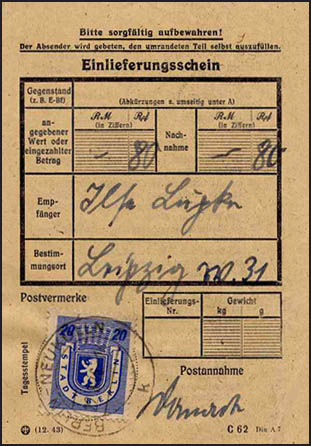 Bitte sorgfältig aufbewahren!
Der Absender wird gebeten, den umrandeten Teil selbst auszufüllen.
Einlieferungsschein
Gegenstand
(z. B. E-Bf)
(Abkürzungen s. umseitig unter A)
an-
gegebener
Wert oder
eingezahlter
Betrag
RM Rpf
(in Ziffern)
Nach-
nahme
RM Rpf
(in Ziffern)
— 80
— 80
Emp-
fänger
Ilse
Bestim-
mungsort
Leipzig W. 31
Postvermerke
Einlieferungs-
Nr.
Gewicht
kg g
20 20
STADT BERLIN
NEUKÖLLN
Tagesstempel
Postannahme
(12. 43)
C 62 Din A 7